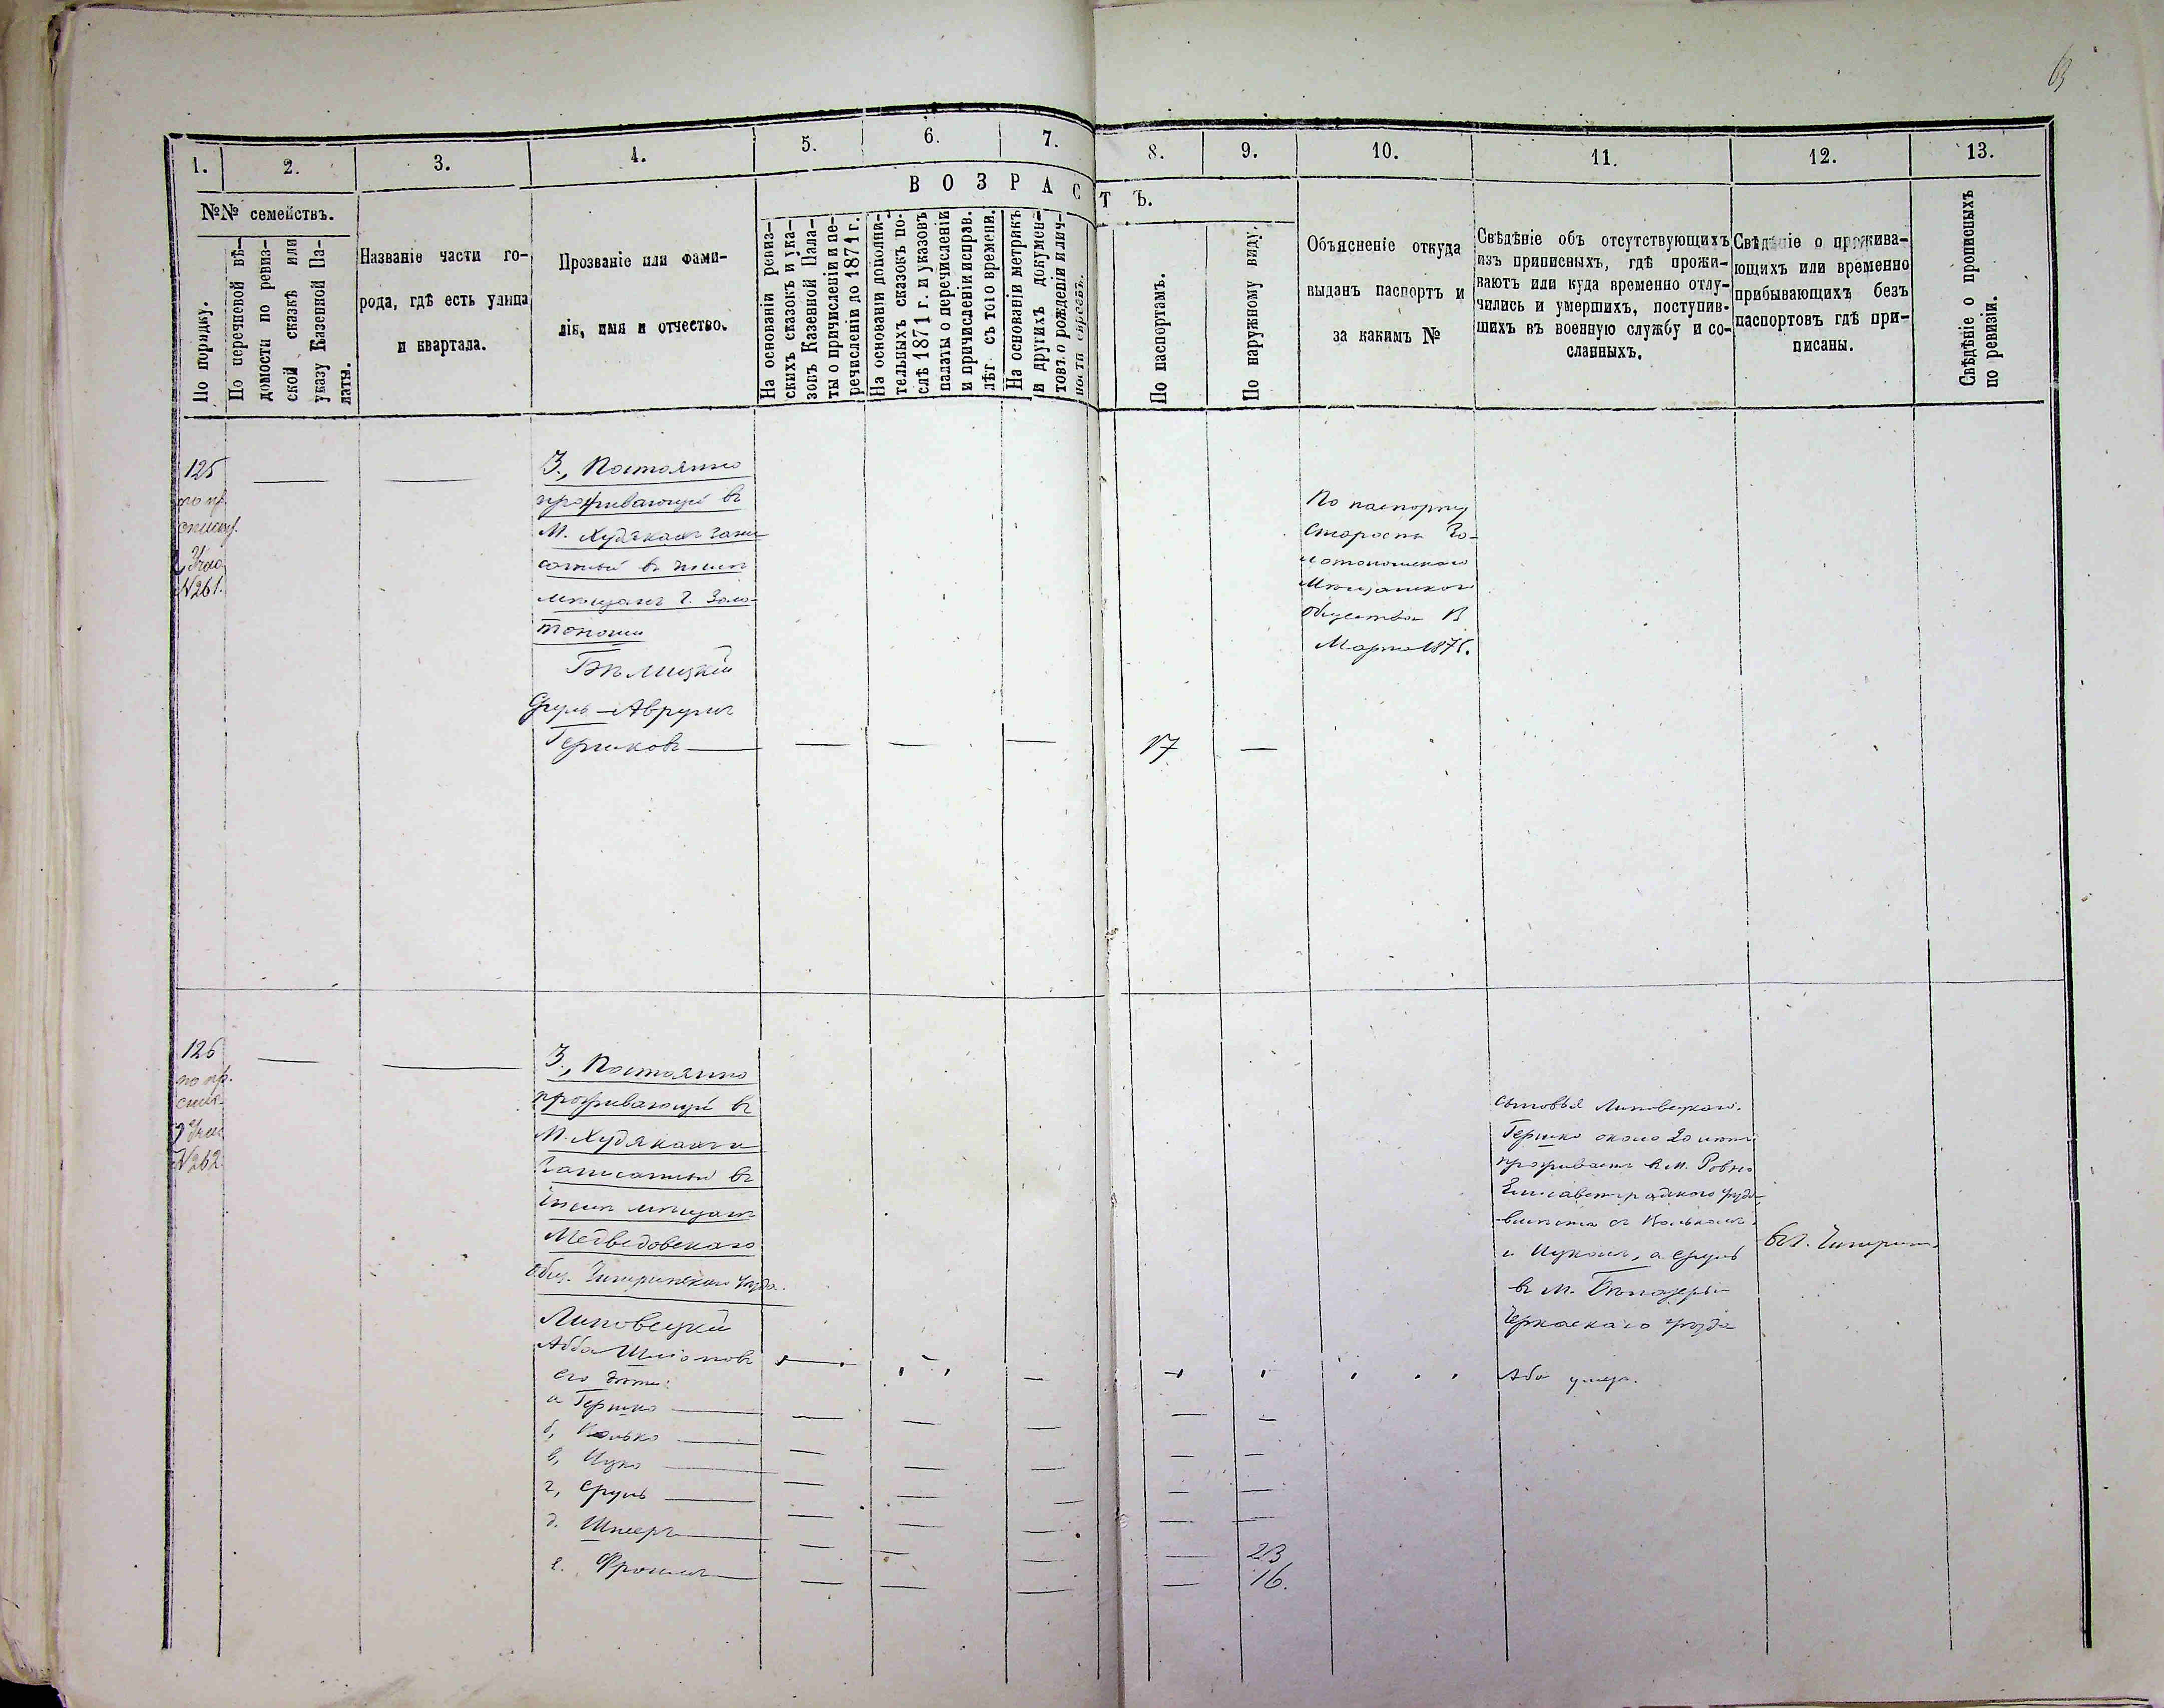 1.
2.
3.
4.
5.
6.
7.
8.
9.
10.
11.
12.
13.
№№ семействъ.
В О З Р А С Т Ъ.
По порядку.
По перечневой вѣ-
домости по ревиз-
ской сказкѣ или
указу Казенной Па-
латы.
Названіе части го-
рода, гдѣ есть улица
и квартала.
Прозваніе или фами-
лія, имя и отчество.
На основаніи ревиз-
скихъ сказокъ и ука-
зовъ Казенной Пала-
ты о причисленіи и пе-
речисленіи до 1871 г.
На основаніи дополни-
тельныхъ сказокъ по-
слѣ 1871 г. и указовъ
палаты о перечисленіи
и причисленіи исправ.
лѣт съ того времени.
На основаніи метрикъ
и другихъ докумен-
товъ о рожденіи и лич-
ности евреевъ.
По паспортамъ.
По наружному виду.
Объясненіе откуда
выданъ паспортъ и
за какимъ №
Свѣдѣніе объ отсутствующихъ
изъ приписныхъ, гдѣ прожи-
ваютъ или куда временно отлу-
чились и умершихъ, поступив-
шихъ въ военную службу и со-
сланныхъ.
Свѣдѣніе о прожива-
ющихъ или временно
прибывающихъ безъ
паспортовъ гдѣ при-
писаны.
Свѣдѣніе о прописныхъ
по ревизіи.
125
по пр.
списку
N261.
3., Постоянно
проживающій въ
М. Худякахъ запи
санный въ числѣ
мѣщанъ г. Золо-
тоноши
Бѣлицкій
Сруль-Аврумъ
Гершковъ
17
По паспорту
Старосты Зо-
лотоношскаго
Мѣщанскаго
Общества
Марта 1875.
126
по пр.
спис.
N262
3., Постоянно
проживающій въ
М. Худякахъ и
записанный въ
числѣ мѣщанъ
Медведовскаго
общ. Чигиринскаго уѣзда.
Липовецкій
Абба Шліомовъ
его дѣти:
а Гершко
б, Колько
в, Ицко
г, Сруль
д. Шмеръ
23
е. Фроимъ
16.
сыновья Липовецкаго.
Гершко около 20 лѣтъ
проживаетъ въ м. Ровно
Елисаветградскаго уѣзда
вмѣстѣ съ Колькомъ
и Ицкомъ, а Сруль
въ м. Бѣлозерьи
Черкаскаго уѣзда
Аба умеръ.
въ г. Чигиринѣ